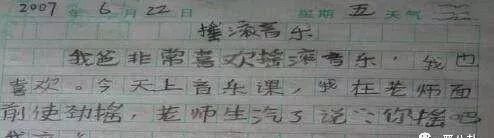 2007年6月22日 星期五 天气
摇滚音乐
我爸非常喜欢摇滚音乐，我也
喜欢。今天上音乐课，我在老师面
前使劲摇，老师生汽了说：“你摇吧